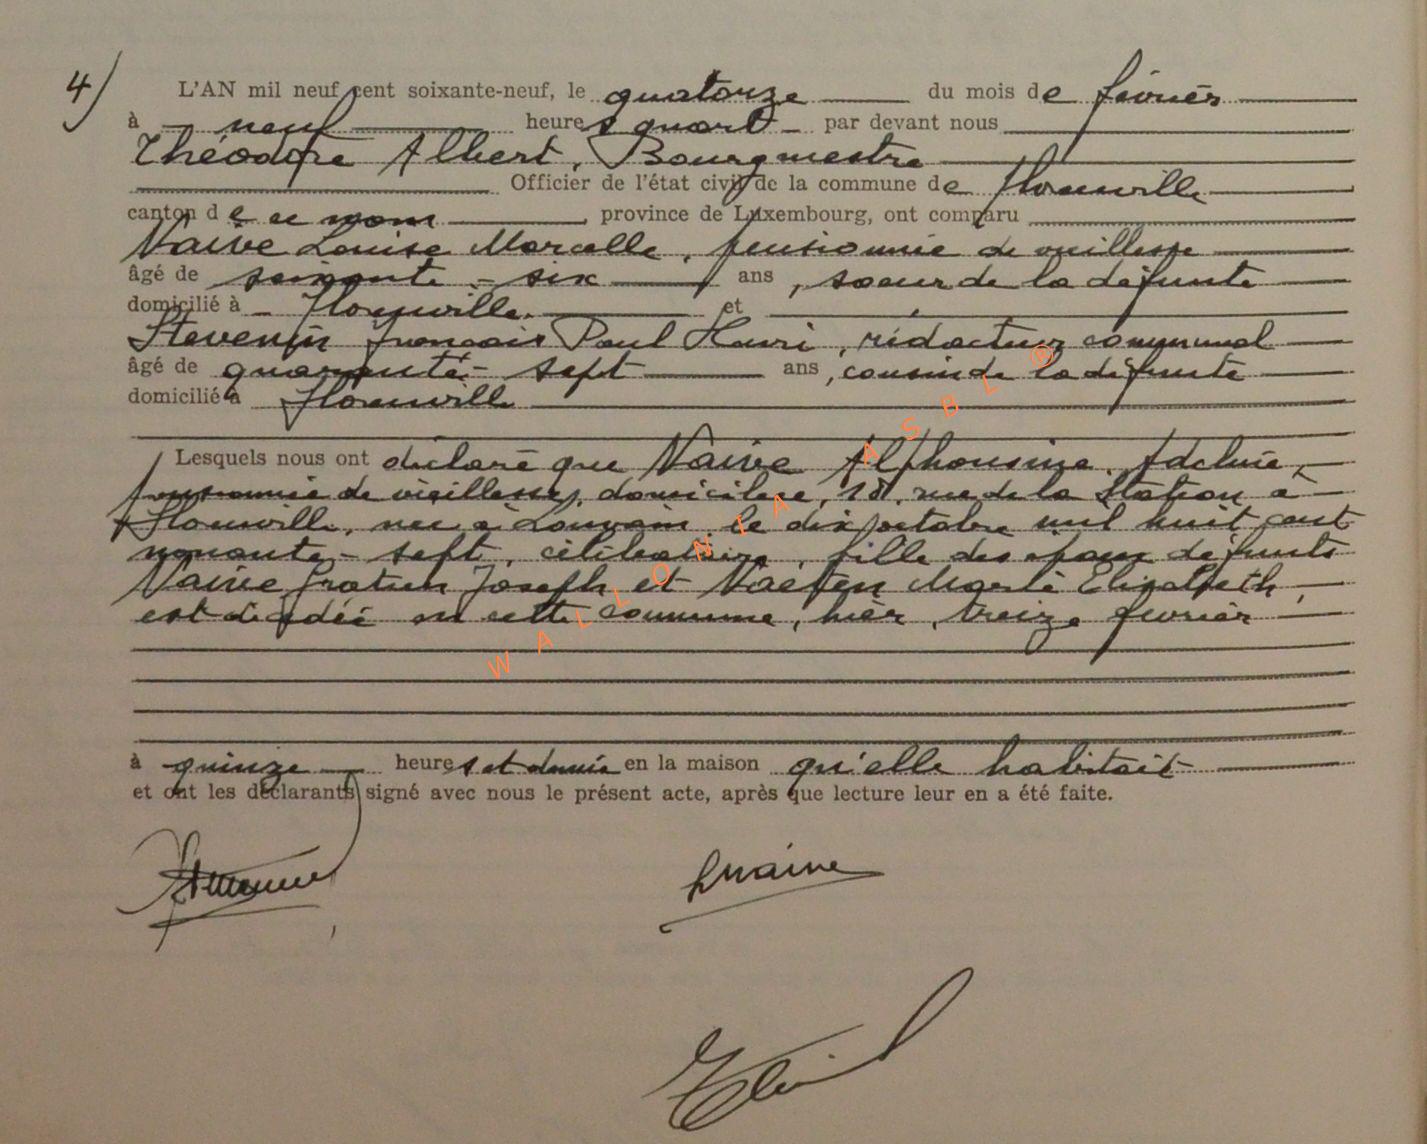 4)
L'AN mil neuf cent soixante-neuf, le quatorze du mois de février
à neuf heures quart par devant nous
Théodore Albert, Bourgmestre
Officier de l'état civil de la commune de Florenville
canton de ce nom province de Luxembourg, ont comparu
Naive Louise Marcelle, pensionnée de vieillesse
âgé de soixante-six ans, soeur de la défunte
domicilié à Florenville. et
Stevenin François Paul Henri, rédacteur communal
âgé de quarante-sept ans, cousin de la défunte
domicilié à Florenville
Lesquels nous ont déclaré que Naive Alphonsine, Adeline,
pensionnée de vieillesse, domiciliée, 18, rue de la Station à
Florenville, née à Louvain le dix octobre mil huit cent
nonante-sept, célibataire, fille des époux défunts
Naive Gratien Joseph et Marie Elisabeth,
est décédée en cette commune, hier, treize février
à quinze heures et demie en la maison qu'elle habitait
et ont les déclarants signé avec nous le présent acte, après que lecture leur en a été faite.
LNaive
WALLONIA ASBL ®